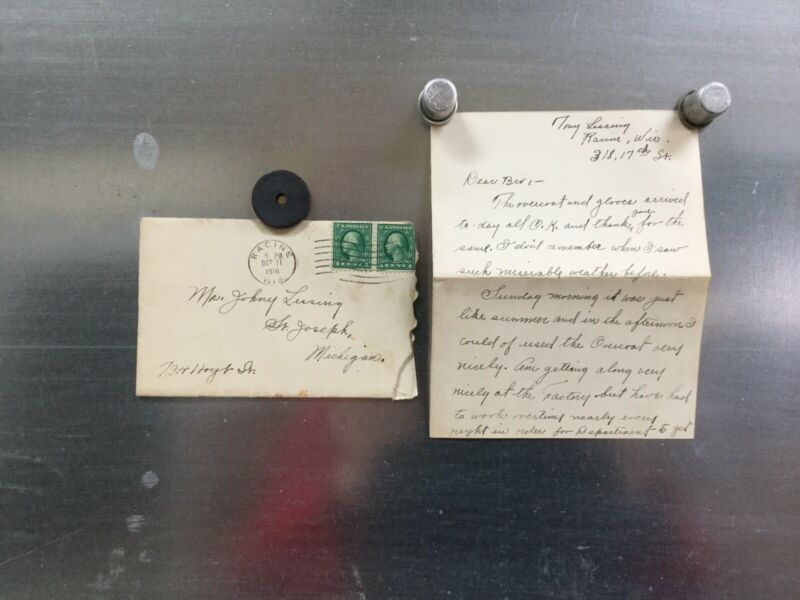 RACINE
6 PM
OCT 11
1916
WIS
U.S. POSTAGE
1 CENT 1
Mr. Johny Lissing
St. Joseph,
Michigan.
734 Hoyt St.
Tony Lissing
Racine, Wis.
318, 17th St.
Dear Bro:-
The overcoat and gloves arrived
to-day all O.K. and thank you for the
same. I don't remember when I saw
such miserable weather before.
Sunday morning it was just
like summer and in the afternoon I
could of used the Overcoat very
nicely. Am getting along very
nicely at the Factory but have had
to work overtime nearly every
night in order for Department to get